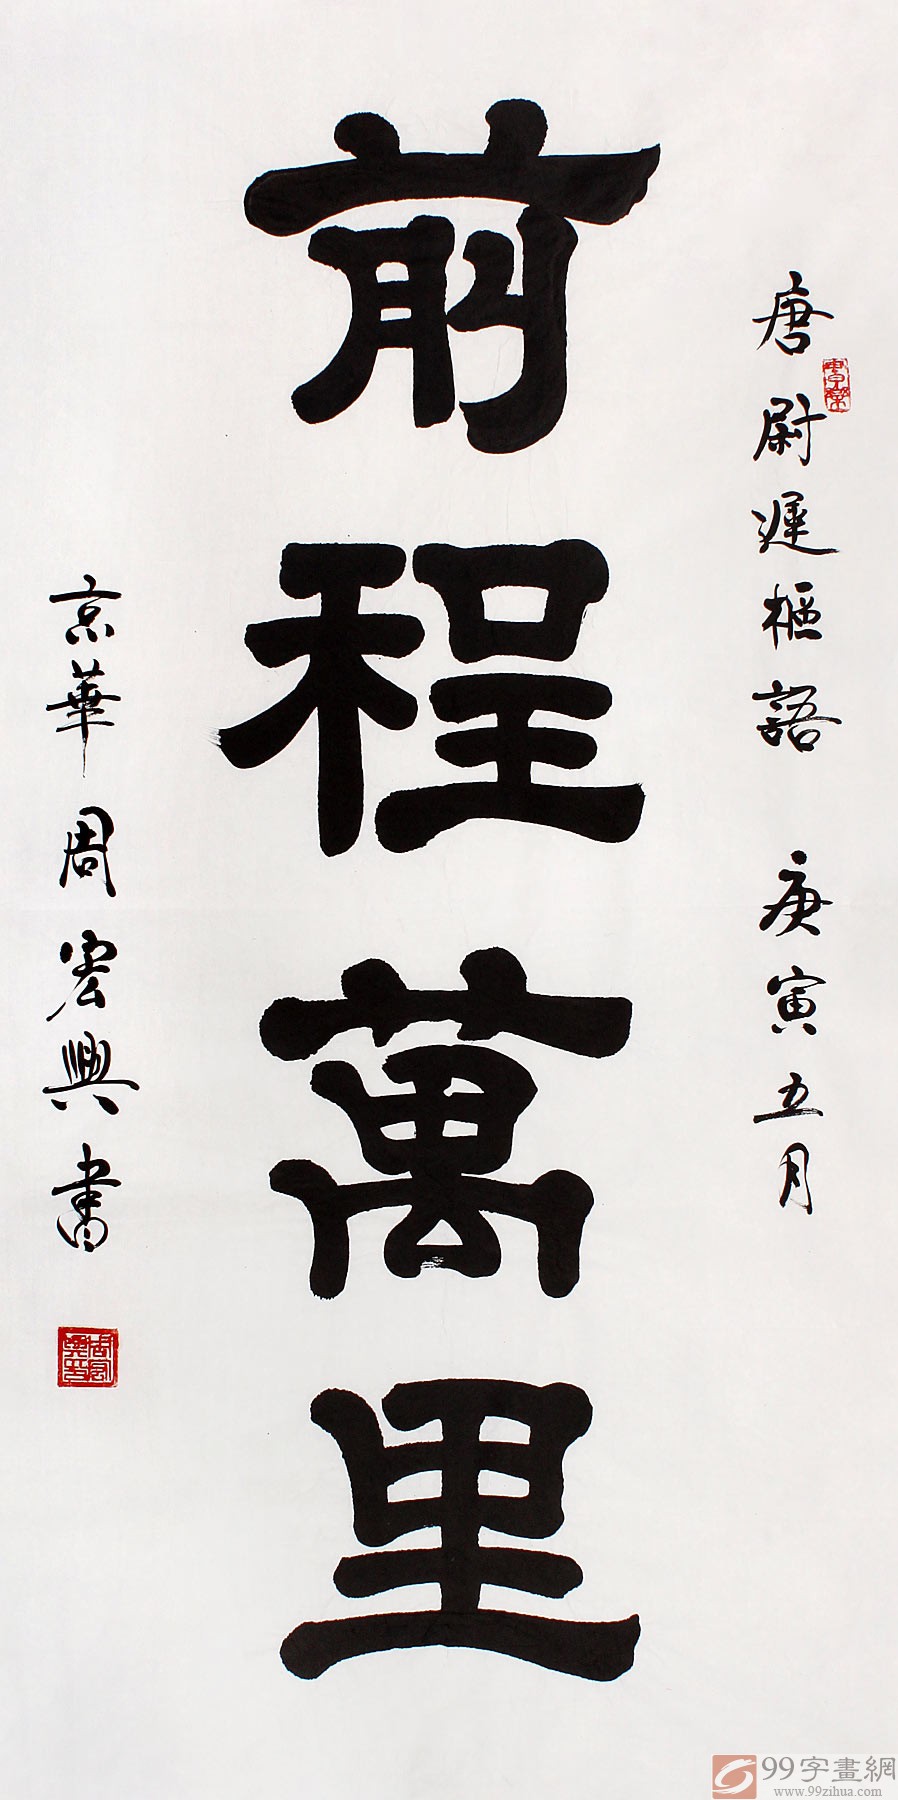 唐尉遲樞語 庚寅五月
前程萬里
京華周宏興書
99字畫網
www.99zihua.com